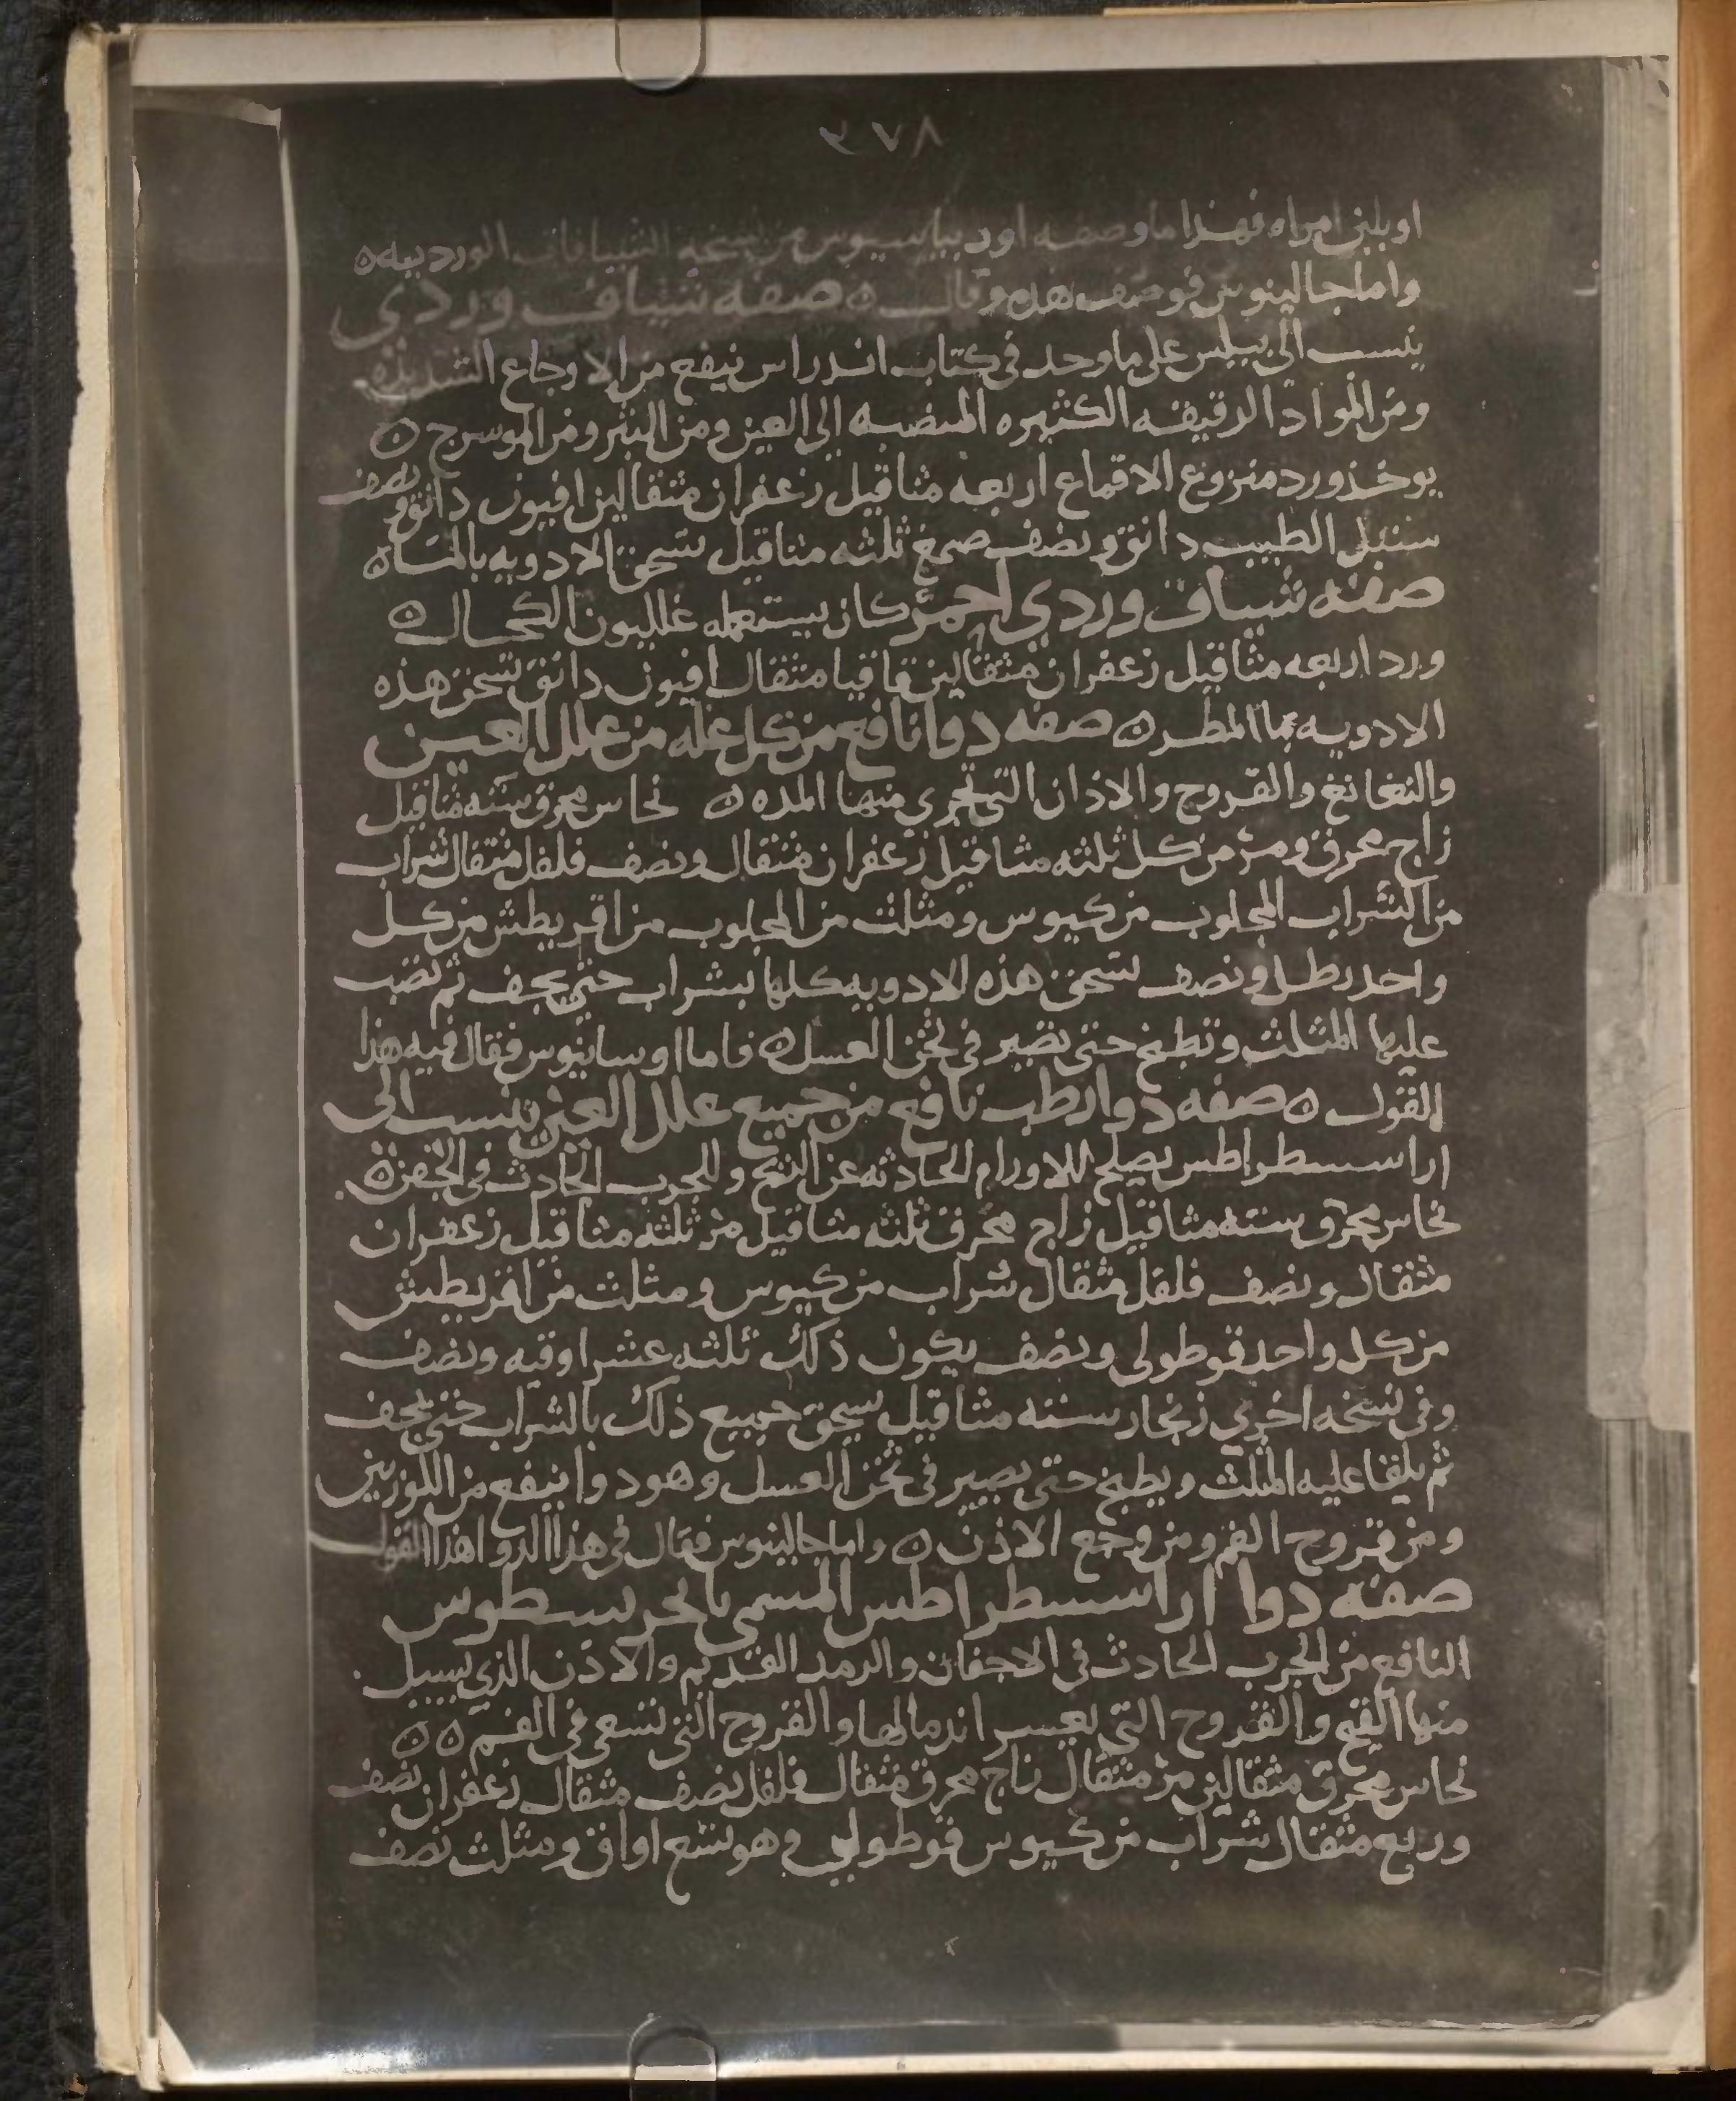 ٣٧٨
او بلبن امراه فهذا ما وصفه اوريباسيوس من نسخه الشيافات الورديه ه
واما جالينوس فوصف هذه وقال ه صفه شياف وردي
ينسب الى نيلس على ما وجد في كتاب اندراس ينفع من الاوجاع الشديده
ومن المواد الرقيقه الكثيره المنصبه الى العين ومن البثر ومن الموسرج ه
يوخذ ورد منزوع الاقماع اربعه مثاقيل زعفران مثقالين افيون دانق ونصف
سنبل الطيب دانق ونصف صمغ ثلثه مثاقيل تسحق الادويه بالماء ه
صفه شياف وردي احمر كان يستعمله غلليون الكحال ه
ورد اربعه مثاقيل زعفران مثقالين قاقيا مثقال افيون دانق تسحق هذه
الادويه بما المطر ه صفه دوا نافع من كل عله من علل العين
والنغانغ والقروح والاذان التي تجري منها المده ه نحاس محرق سته مثاقيل
زاج محرق ومر من كل ثلثه مثاقيل زعفران مثقال ونصف فلفل مثقال شراب
من الشراب المجلوب من كيوس ومثلث من المجلوب من اقريطش من كل
واحد رطل ونصف تسحق هذه الادويه كلها بشراب حتى يجف ثم تصب
عليها المثلث وتطبخ حتى تصير في ثخن العسل ه فاما اوسابيوس فقال فيه هذا
القول ه صفه دوا رطب نافع من جميع علل العين ينسب الى
اراسسطراطس يصلح للاورام الحادثه عن النتح وللجرب الحادث في الجفن ه
نحاس محرق سته مثاقيل زاج محرق ثلثه مثاقيل مر ثلثه مثاقيل زعفران
مثقال ونصف فلفل مثقال شراب من كيوس ومثلث من اقريطش
من كل واحد قوطولى ونصف يكون ذلك ثلثه عشر اوقيه ونصف
وفي نسخه اخري زنجار سته مثاقيل يسحق جميع ذلك بالشراب حتى يجف
ثم يلقا عليه المثلث ويطبخ حتى يصير في ثخن العسل وهو دوا ينفع من اللوزتين
ومن قروح الفم ومن وجع الاذن ه واما جالينوس فقال في هذا الدوا هذا القول
صفه دوا اراسسطراطس المسمى بانحرسطوس
النافع من الجرب الحادث في الاجفان والرمد القديم والاذن الذي يسيل
منها القيح والقروح التي يعسر اندمالها والقروح التي تسعى في الفم ه ه
نحاس محرق مثقالين مر مثقال زاج محرق مثقال فلفل نصف مثقال زعفران نصف
وربع مثقال شراب من كيوس قوطولي وهو تسع اواق ومثلث نصف